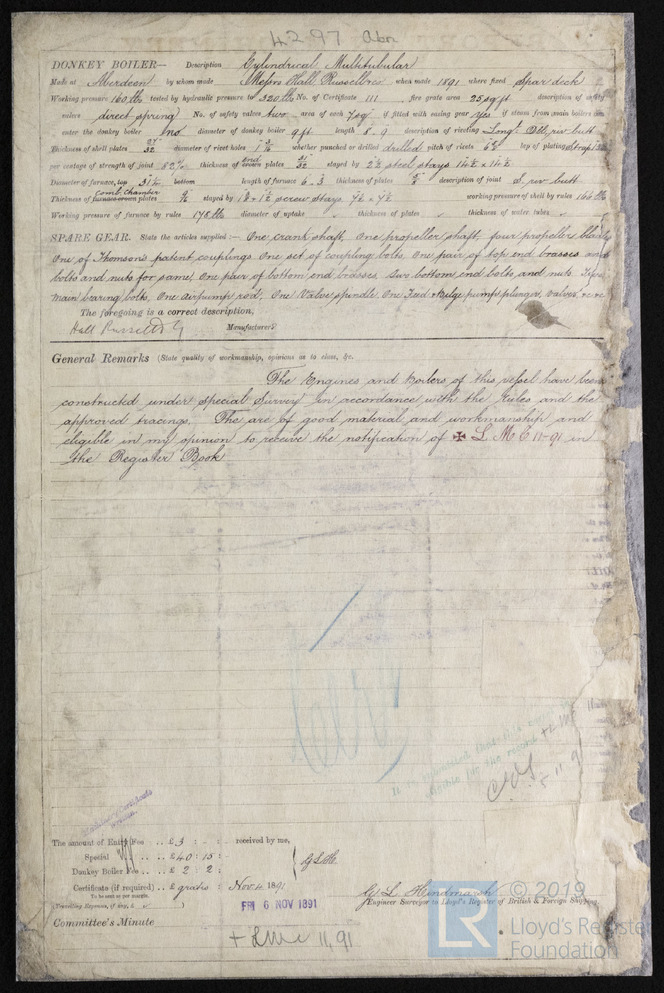 42.97 Abn
DONKEY BOILER— Description Cylindrical Multitubular
Made at Aberdeen by whom made Messrs Hall Russell & Co when made 1891 where fixed Spar deck
Working pressure 160 lbs tested by hydraulic pressure to 320 lbs No. of Certificate 111 fire grate area 25 sq ft. description of safety
valves direct spring No. of safety valves two area of each 7 sq" if fitted with easing gear yes if steam from main boilers can
enter the donkey boiler no diameter of donkey boiler 9 ft. length 8.9 description of riveting Long. Dbl. riv butt
Thickness of shell plates 27/32 diameter of rivet holes whether punched or drilled drilled pitch of rivets lap of plating strap
per centage of strength of joint 82% thickness of end crown plates stayed by 2½ steel stays 14½ x 14½
Diameter of furnace, top 31½ bottom length of furnace 6.3 thickness of plates description of joint S. riv butt
Thickness of furnace crown plates comb. chamber stayed by screw stays working pressure of shell by rules 166 lb
Working pressure of furnace by rules 178 lb diameter of uptake thickness of plates thickness of water tubes
SPARE GEAR. State the articles supplied:— One crank shaft, One propeller shaft, four propeller blades
One of Thomson's patent couplings One set of coupling bolts, One pair of top end brasses and
bolts and nuts for same. One pair of bottom end brasses two bottom end bolts and nuts.
main bearing bolts, One airpump rod, One Valve spindle One Feed & Bilge pump plunger, valves,
The foregoing is a correct description,
Hall Russell & Co Manufacturer.
General Remarks (State quality of workmanship, opinions as to class, &c.
The Engines and Boilers of this vessel have been
constructed under special Survey in accordance with the Rules and the
approved tracings. The are of good material and workmanship and
eligible in my opinion to receive the notification of ✠ L.M.C 11-91 in
the Register Book
It is submitted that this vessel is
eligible for the record + LMC 11
5.11.9
Machinery Certificate
The amount of Entry Fee .. £3 : - : received by me,
Special .. £40 : 15 :
Donkey Boiler Fee .. £2 : 2 :
Certificate (if required) .. £ gratis : Nov 4 1891
To be sent as per margin.
(Travelling Expenses, if any, £ )
FRI 6 NOV 1891
G. L. Hindmarsh
Engineer Surveyor to Lloyd's Register of British & Foreign Shipping.
Committee's Minute
+ LMC 11,91
LR
© 2019
Lloyd's Register
Foundation